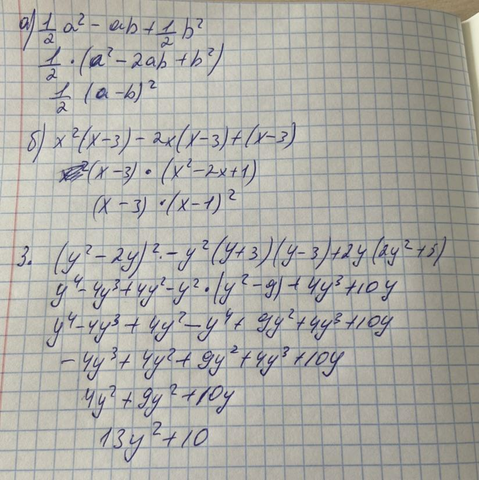 а) 1/2 a² - ab + 1/2 b²
1/2 · (a² - 2ab + b²)
1/2 (a-b)²
б) x²(x-3) - 2x(x-3) + (x-3)
(x-3) · (x² - 2x + 1)
(x-3) · (x-1)²
3. (y² - 2y)² - y²(y+3)(y-3) + 2y(2y²+5)
y⁴ - 4y³ + 4y² - y² · (y² - 9) + 4y³ + 10y
y⁴ - 4y³ + 4y² - y⁴ + 9y² + 4y³ + 10y
- 4y³ + 4y² + 9y² + 4y³ + 10y
4y² + 9y² + 10y
13y² + 10